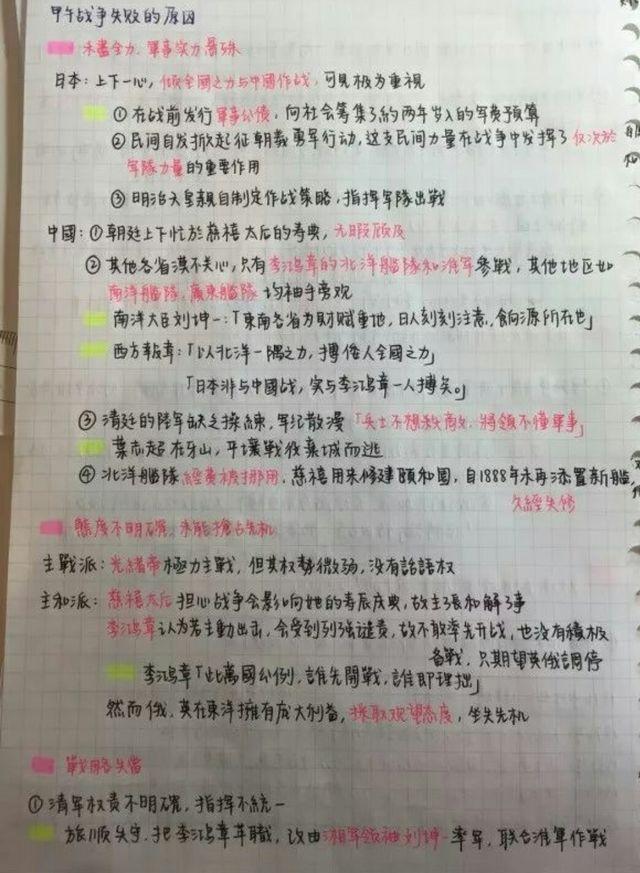 甲午战争失败的原因
未盡全力、軍事实力懸殊
日本：上下一心，倾全國之力与中國作战，可見极为重視
① 在战前发行軍事公债，向社会筹集了約两年岁入的军费預算
② 民间自发掀起征朝義勇军行动，这支民间力量在战争中发挥了仅次於
军隊力量的重要作用
③ 明治天皇親自制定作战策略，指挥军隊出戰
中國：① 朝廷上下忙於慈禧太后的寿典，无暇顾及
② 其他各省漠不关心，只有李鸿章的北洋艦隊和淮军參戰，其他地区如
南洋艦隊、廣東艦隊均袖手旁观
南洋大臣刘坤一：「東南各省为財赋重地，日人刻刻注意，餉源所在也」
西方報章：「以北洋一隅之力，搏倭人全國之力」
「日本非与中國战，实与李鸿章一人搏矣。」
③ 清廷的陸军缺乏操練，军纪散漫「兵士不想殺敵，將領不懂軍事」
葉志超在牙山，平壤戰役棄城而逃
④ 北洋艦隊經費被挪用，慈禧用來修建頤和園，自1888年未再添置新艦，
久經失修
態度不明確，未能搶占先机
主戰派：光緒帝極力主戰，但其权勢微弱，没有話語权
主和派：慈禧太后担心战争会影响她的寿辰庆典，故主張和解了事
李鸿章认为若主動出击，会受到列强谴责，故不敢率先开战，也没有積极
备戰，只期望英俄調停
李鸿章「此萬國公例，誰先開戰，誰即理拙」
然而俄、英在東洋擁有庞大利益，採取观望态度，坐失先机
戰略失當
① 清军权责不明確，指挥不統一
旅順失守，把李鸿章革職，改由湘軍領袖刘坤一率军，联合淮军作戰